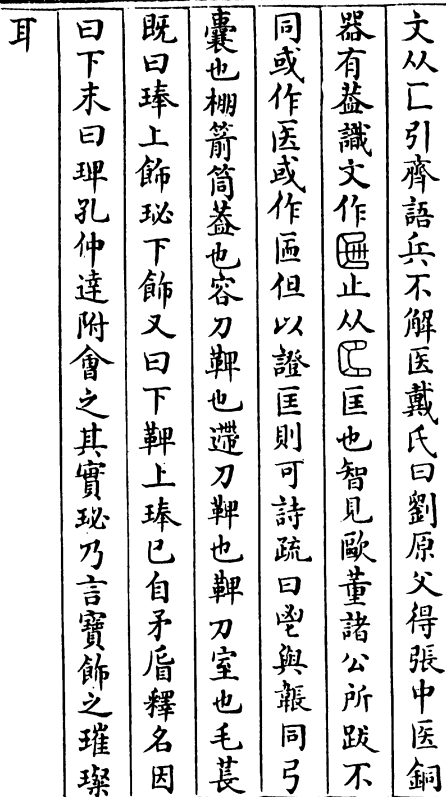 文从匸引齊語兵不解医戴氏曰劉原父得張中医銅
器有葢識文作止从匡也智見歐董諸公所跋不
同或作医或作匼但以證匡則可詩疏曰鬯與韔同弓
囊也棚箭筒葢也容刀鞞也遰刀鞞也鞞刀室也毛萇
既曰琫上飾珌下飾又曰下鞞上琫已自矛盾釋名因
曰下末曰琕孔仲達附會之其實珌乃言寶飾之璀璨
耳